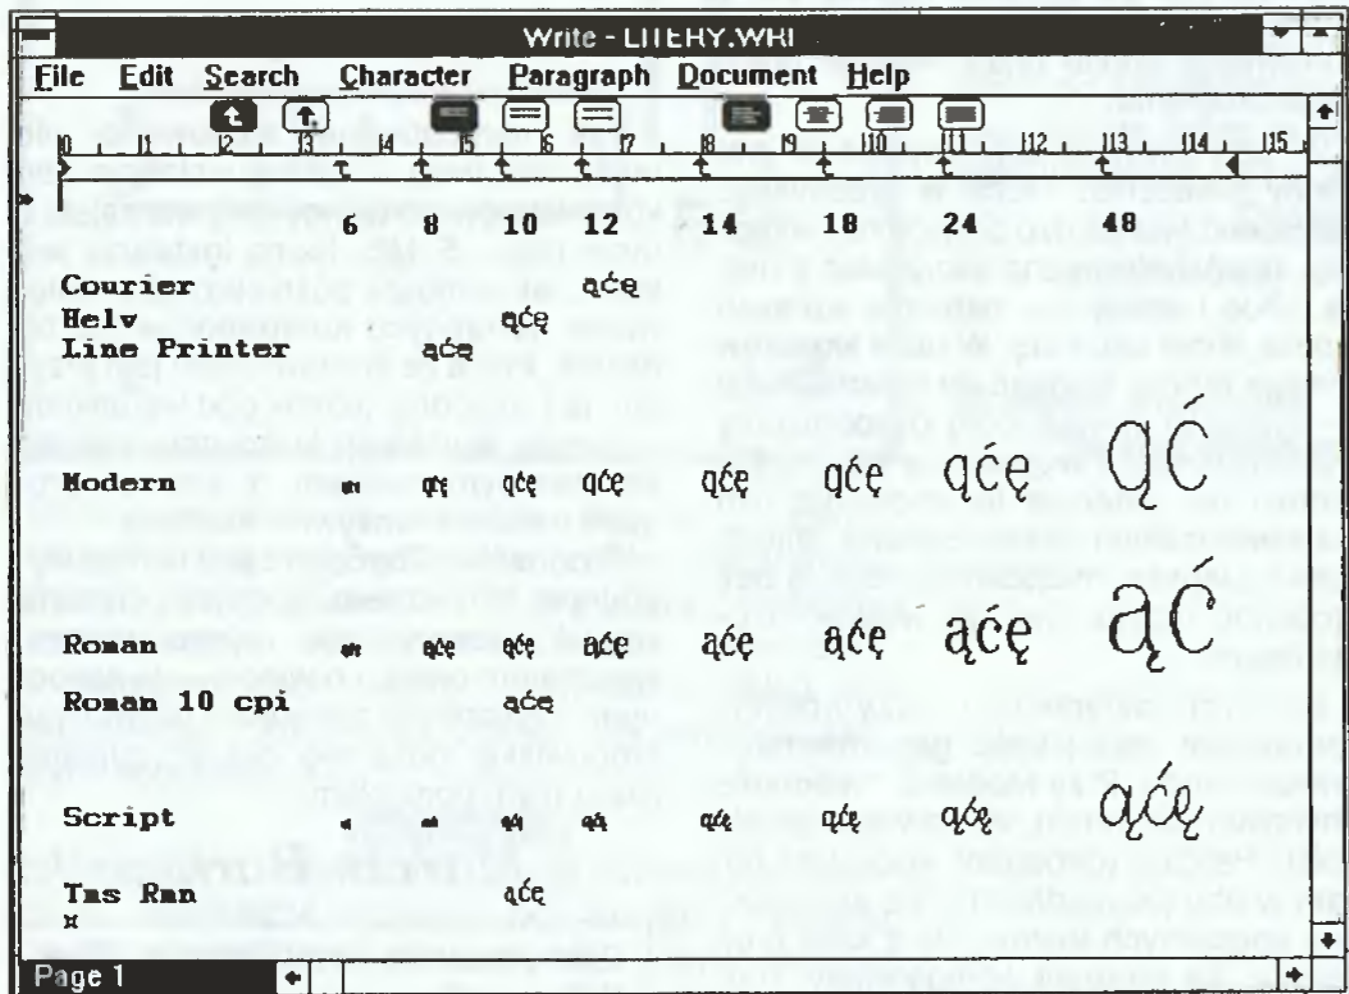 Write - LITERY.WRI
File Edit Search Character Paragraph Document Help
0 1 2 3 4 5 6 7 8 9 10 11 12 13 14 15
6 8 10 12 14 18 24 48
Courier ąćę
Helv ąćę
Line Printer ąćę
Modern ąćę ąćę ąćę ąćę ąćę ąćę ąć
Roman ąćę ąćę ąćę ąćę ąćę ąćę ąć
Roman 10 cpi ąćę
Script ąćę ąćę ąćę ąćę
Tms Rmn ąćę
¤
Page 1